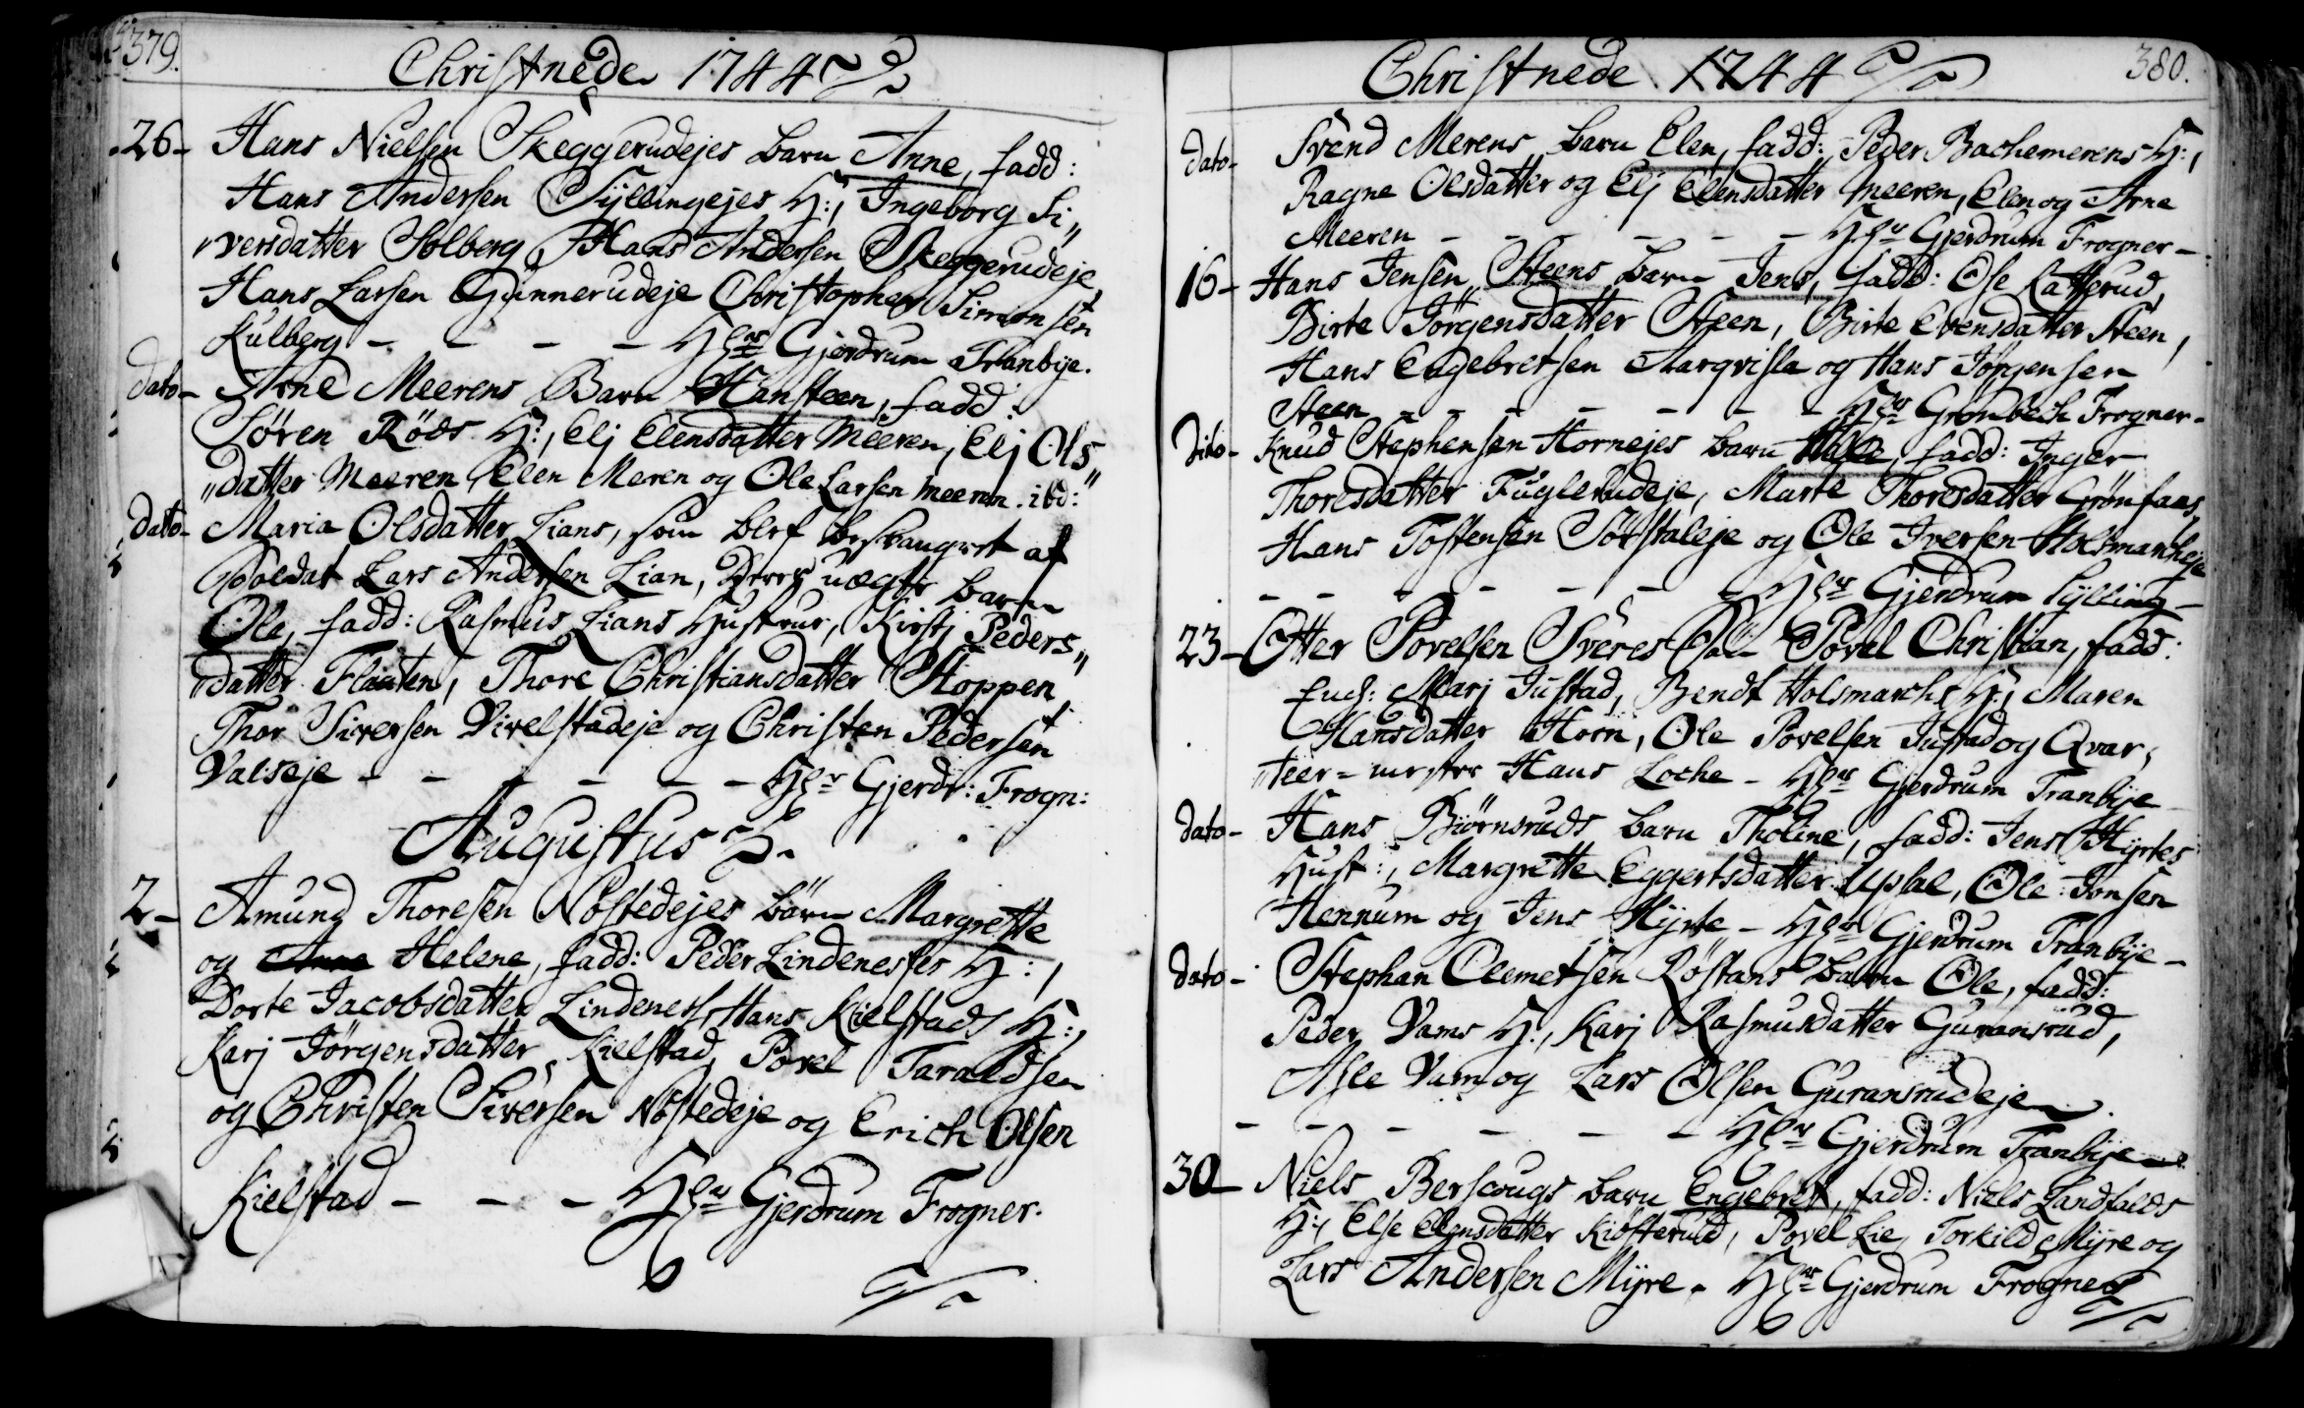 379.
Christnede 1744
26- Hans Nielsen Skeggerudejes barn Anne, fadd:
Hans Andersen Syllingejes H:, Ingeborg Si„
„versdatter Solberg, Hans Andersen Skeggerudeje,
Hans Larsen Gunnerudeje Christopher Simonsen
Kulberg - - - - Hr Gjerdrum Tranbye.
dato- Arne Meerens Barn Hansteen, fadd:
Søren Røds H:, Elj Elensdatter Meeren, Elj Ols„
„datter Meeren, Elen Meren og Ole Larsen meeren. ibd:
dato- Maria Olsdatter Lians, som blef besvangret af
Soldat Lars Andersen Lian, Deres uægte barn
Ole, fadd: Rasmus Lians Hustrue, Kirstj Peders„
„datter Flaaten, Thore Christiansdatter Stoppen,
Thor Siversen Vivelstadeje og Christen Pedersen
Valseje - - - - - - Hr Gjerdr: Frogn:
Augustus
2- Amund Thoresen Nøstedejes börn Margrette
og Anne Helene, fadd: Peder Lindeneses H:,
Dorte Jacobsdatter Lindenes, Hans Kielstads H:,
Karj Jørgensdatter Kielstad, Povel Taraldsen
og Christen Siversen Nøstedeje og Erich Olsen
Kielstad - - - Hr Gjerdrum Frogner.
380.
Christnede 1744
dato- Svend Merens barn Elen, fadd: Peder Bachemerens H:,
Ragne Olsdatter og Elj Elensdatter Meeren, Elen og Arne
Meeren - - - - - - Hr Gjerdrum Frogner-
16- Hans Jensen Steens barn Jens, fadd: Ole Katterud,
Birte Jörgensdatter Steen, Birte Evensdatter Steen,
Hans Engebretsen Aarqvisla og Hans Jörgensen
Steen - - - - - - - Hr Grønbech Frogner-
Dito- Knud Stephensen Hornejes barn fadd: Inger
Thoresdatter Fuglerudeje, Marte Thoresdatter Grønsaas,
Hans Tostensen Sørstaleje og Ole Iversen Holsmarcheje
- - - - - - - Hr Gjerdrum Sylling-
23- Otter Povelsen Sveres Povel Christian, fadd:
Ench: Marj Justad, Bendt Holsmarchs H:, Maren
Hansdatter Horn, Ole Povelsen Justad og Qvar„
„teer=mester Hans Loche - Hr Gjerdrum Tranbye
dato- Hans Biörnsruds barn Tholine, fadd: Jens Hyrtes
Hust:, Margrette Eggertsdatter Upsal, Ole Jonsen
Hennum og Jens Hyrte - Hr Gjerdrum Tranbye-
dato- Stephan Clemetsen Röstans barn Ole, fadd:
Peder Vams H:, Karj Rasmusdatter Guransrud,
Asle Vam og Lars Olsen Guransrudeje
- - - - - - Hr Gjerdrum Tranbye
30- Niels Berscougs barn Engebret, fadd: Niels Landfalds
H:, Else Elensdatter Kiösterud, Povel Lie, Torkild Myre og
Lars Andersen Myre. Hr Gjerdrum Frogner